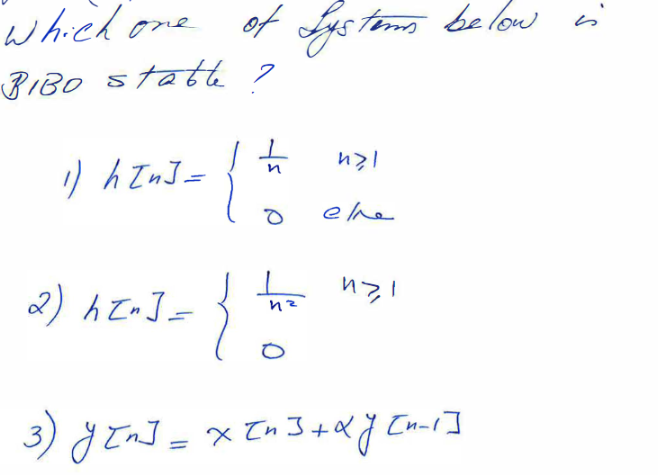 Which one of Systems below is
BIBO stable ?
1) h[n] = { 1/n n≥1
0 else
2) h[n] = { 1/n² n≥1
0
3) y[n] = x[n] + αy[n-1]